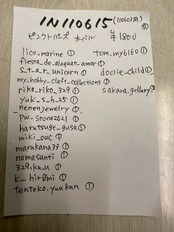 IN110615 (110603用)
ピンクトパーズ オーバル ¥1800
lico_marine ①
fiesta_de_alequan_amor ①
s_t_a_r_unicorn ①
my.hobby_claft_collections ①
rika_riko_329 ①
yuk_s_h.25 ①
nenenjewelry ①
PW-stone2021 ①
harutsuge_gusa ①
miki_ouc ①
marukana77 ①
nomasanti ①
329.ka.u ①
k_hir0mi ①
tenteko.yuukun ①
tom.my6160 ①
doclie_child ①
sakana_gallery ①